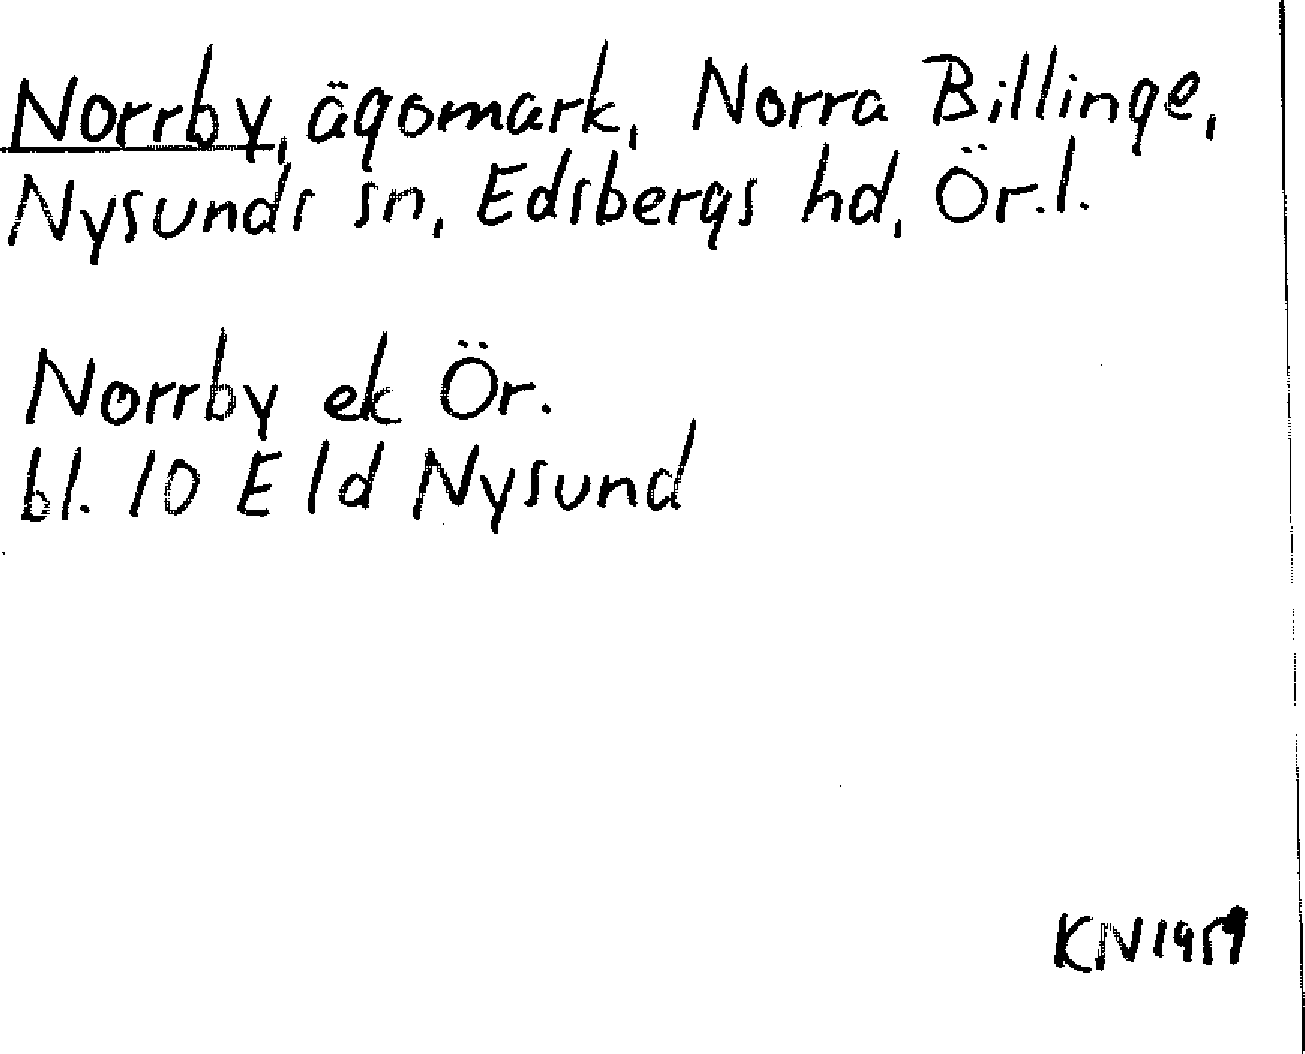 Norrby, ägomark, Norra Billinge,
Nysunds sn, Edsbergs hd, Ör.l.
Norrby ek Ör.
bl. 10 E 1d Nysund
KN 1959